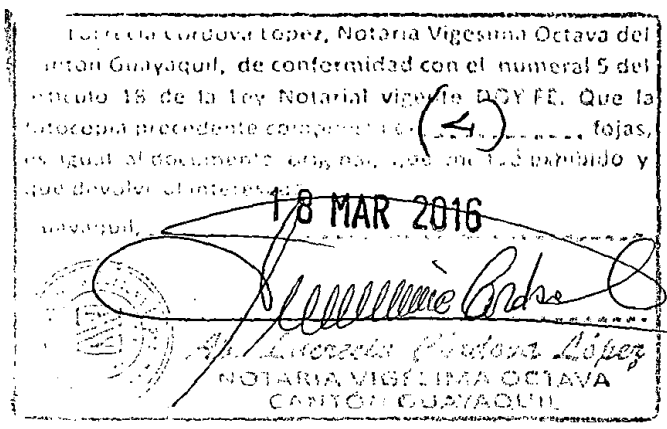 Lucrecia Córdova López, Notaria Vigésima Octava del
cantón Guayaquil, de conformidad con el numeral 5 del
artículo 18 de la Ley Notarial vigente DOY FE. Que la
fotocopia precedente compuesta fojas,
es igual al documento original, que me fue exhibido y
que devolví al interesado
Guayaquil,
18 MAR 2016
Ab. Lucrecia Córdova López
NOTARIA VIGÉSIMA OCTAVA
CANTÓN GUAYAQUIL